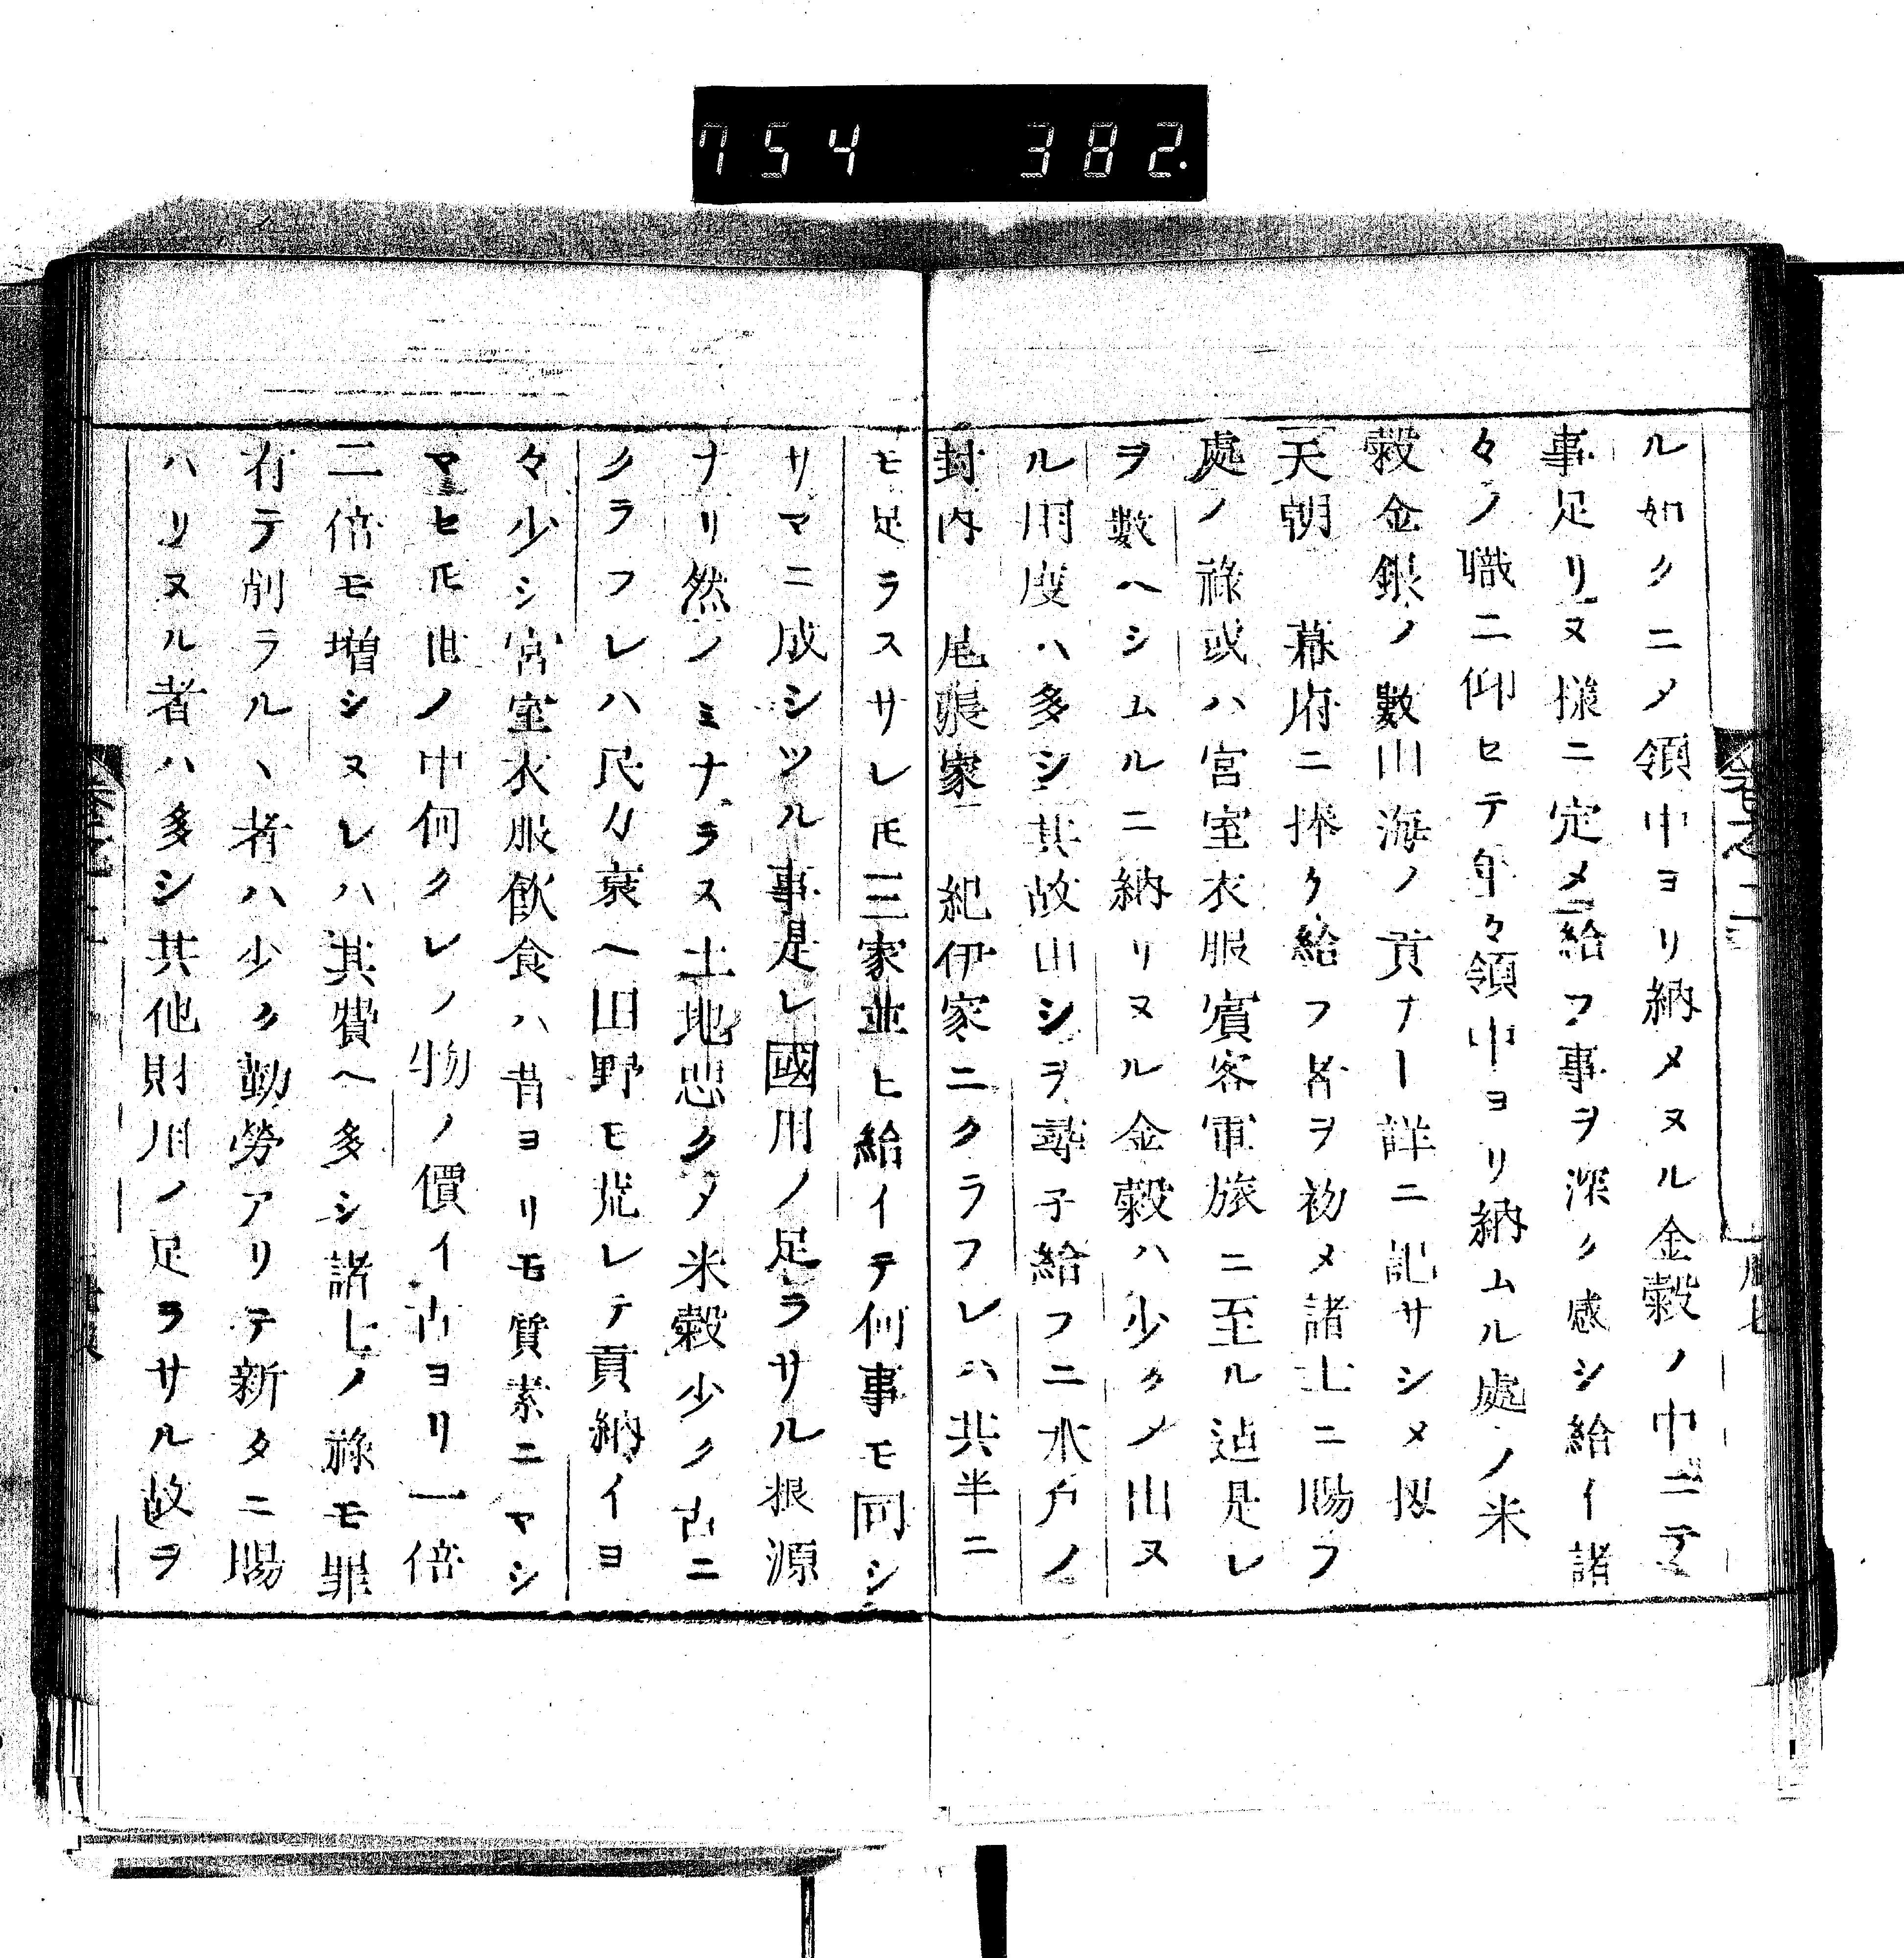 754 382.
ル如クニノ領中ヨリ納メヌル金穀ノ中ニテ
事足リヌ様ニ定メ給フ事ヲ深ク感シ給イ諸
々ノ職ニ仰セテ年々領中ヨリ納ムル處ノ米
穀金銀ノ數山海ノ貢ナー詳ニ記サシメ扨
天朝 幕府ニ捧ケ給フ者ヲ初メ諸士ニ賜フ
處ノ祿或ハ宮室衣服賓客軍旅ニ至ル迠是レ
ヲ數ヘシムルニ納リヌル金穀ハ少クノ出ヌ
ル用度ハ多シ其故出シヲ尋子給フニ水戶ノ
封內 尾張家 紀伊家ニクラフレハ共半ニ
モ足ラスサレ𪜈三家並ヒ給イテ何事モ同シ
サマニ成シツル事是レ國用ノ足ラサル根源
ナリ然ノミナラス土地悪クノ米穀少ク古ニ
クラフレハ民力衰ヘ田野モ荒レテ貢納イヨ
々少シ宮室衣服飲食ハ昔ヨリモ質素ニマシ
マセ𪜈世ノ中何クレノ物ノ價イ古ヨリ一倍
二倍モ増シヌレハ其費ヘ多シ諸士ノ祿モ罪
有テ削ラル、者ハ少ク勤勞アリテ新タニ賜
ハリヌル者ハ多シ其他財用ノ足ラサル故ヲ